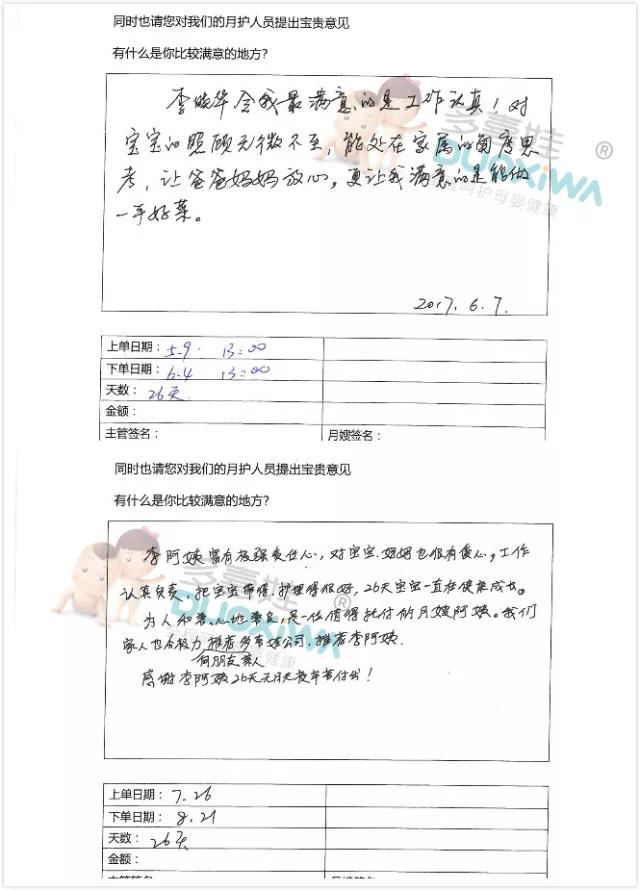 同时也请您对我们的月护人员提出宝贵意见
有什么是你比较满意的地方?
李晓华令我最满意的是工作认真！对
宝宝的照顾无微不至，能处在家属的角度思
考，让爸爸妈妈放心，更让我满意的是能做
一手好菜。
多喜娃
DUOXiWA
®
呵护母婴健康
2017.6.7.
上单日期：5.9. 13:00
下单日期：6.4 13:00
天数：26天.
金额：
主管签名：
月嫂签名：
同时也请您对我们的月护人员提出宝贵意见
有什么是你比较满意的地方?
李阿姨富有极强责任心，对宝宝.妈妈也很有爱心，工作
认真负责，把宝宝带得.护理得很好，26天宝宝一直在健康成长。
为人和善.心地善良，是一位值得托付的月嫂阿姨。我们
家人也会极力推荐多喜娃公司，推荐李阿姨.
向朋友家人
感谢李阿姨26天
付出！
多喜娃
DUOXiWA
®
上单日期：7.26
下单日期：8.21
天数：26天
金额：